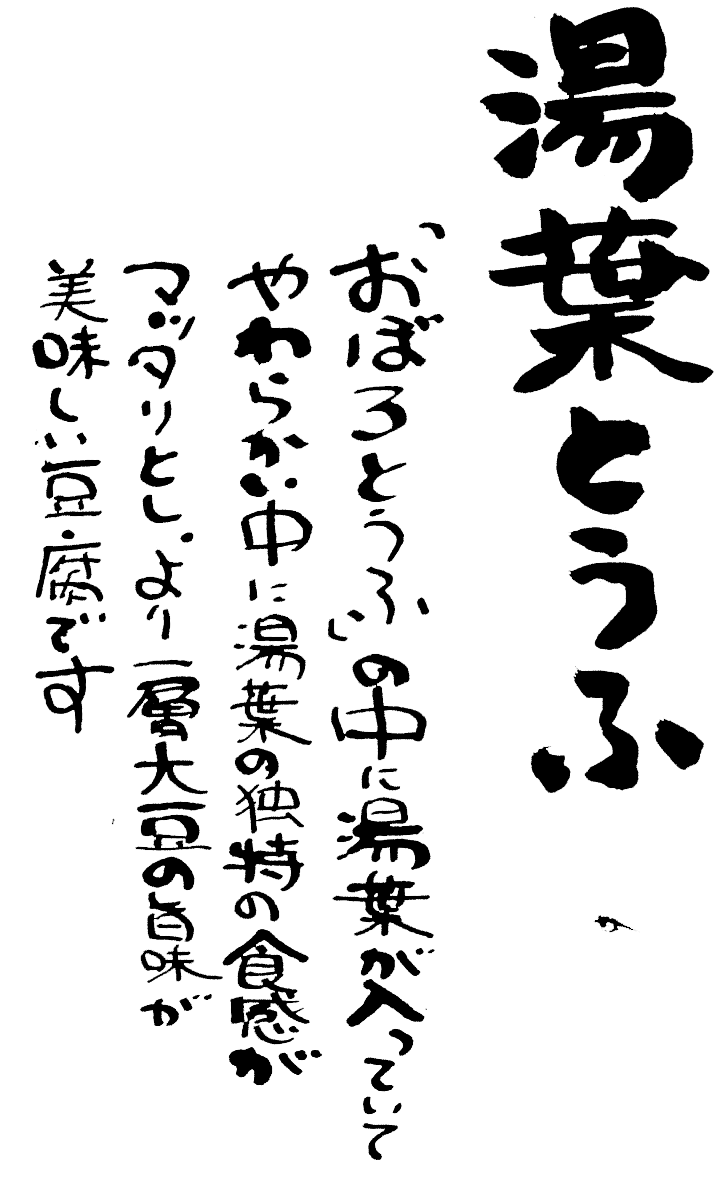 湯葉とうふ
「おぼろとうふ」の中に湯葉が入っていて
やわらかい中に湯葉の独特の食感が
マッタリとし、より一層大豆の旨味が
美味しい豆腐です